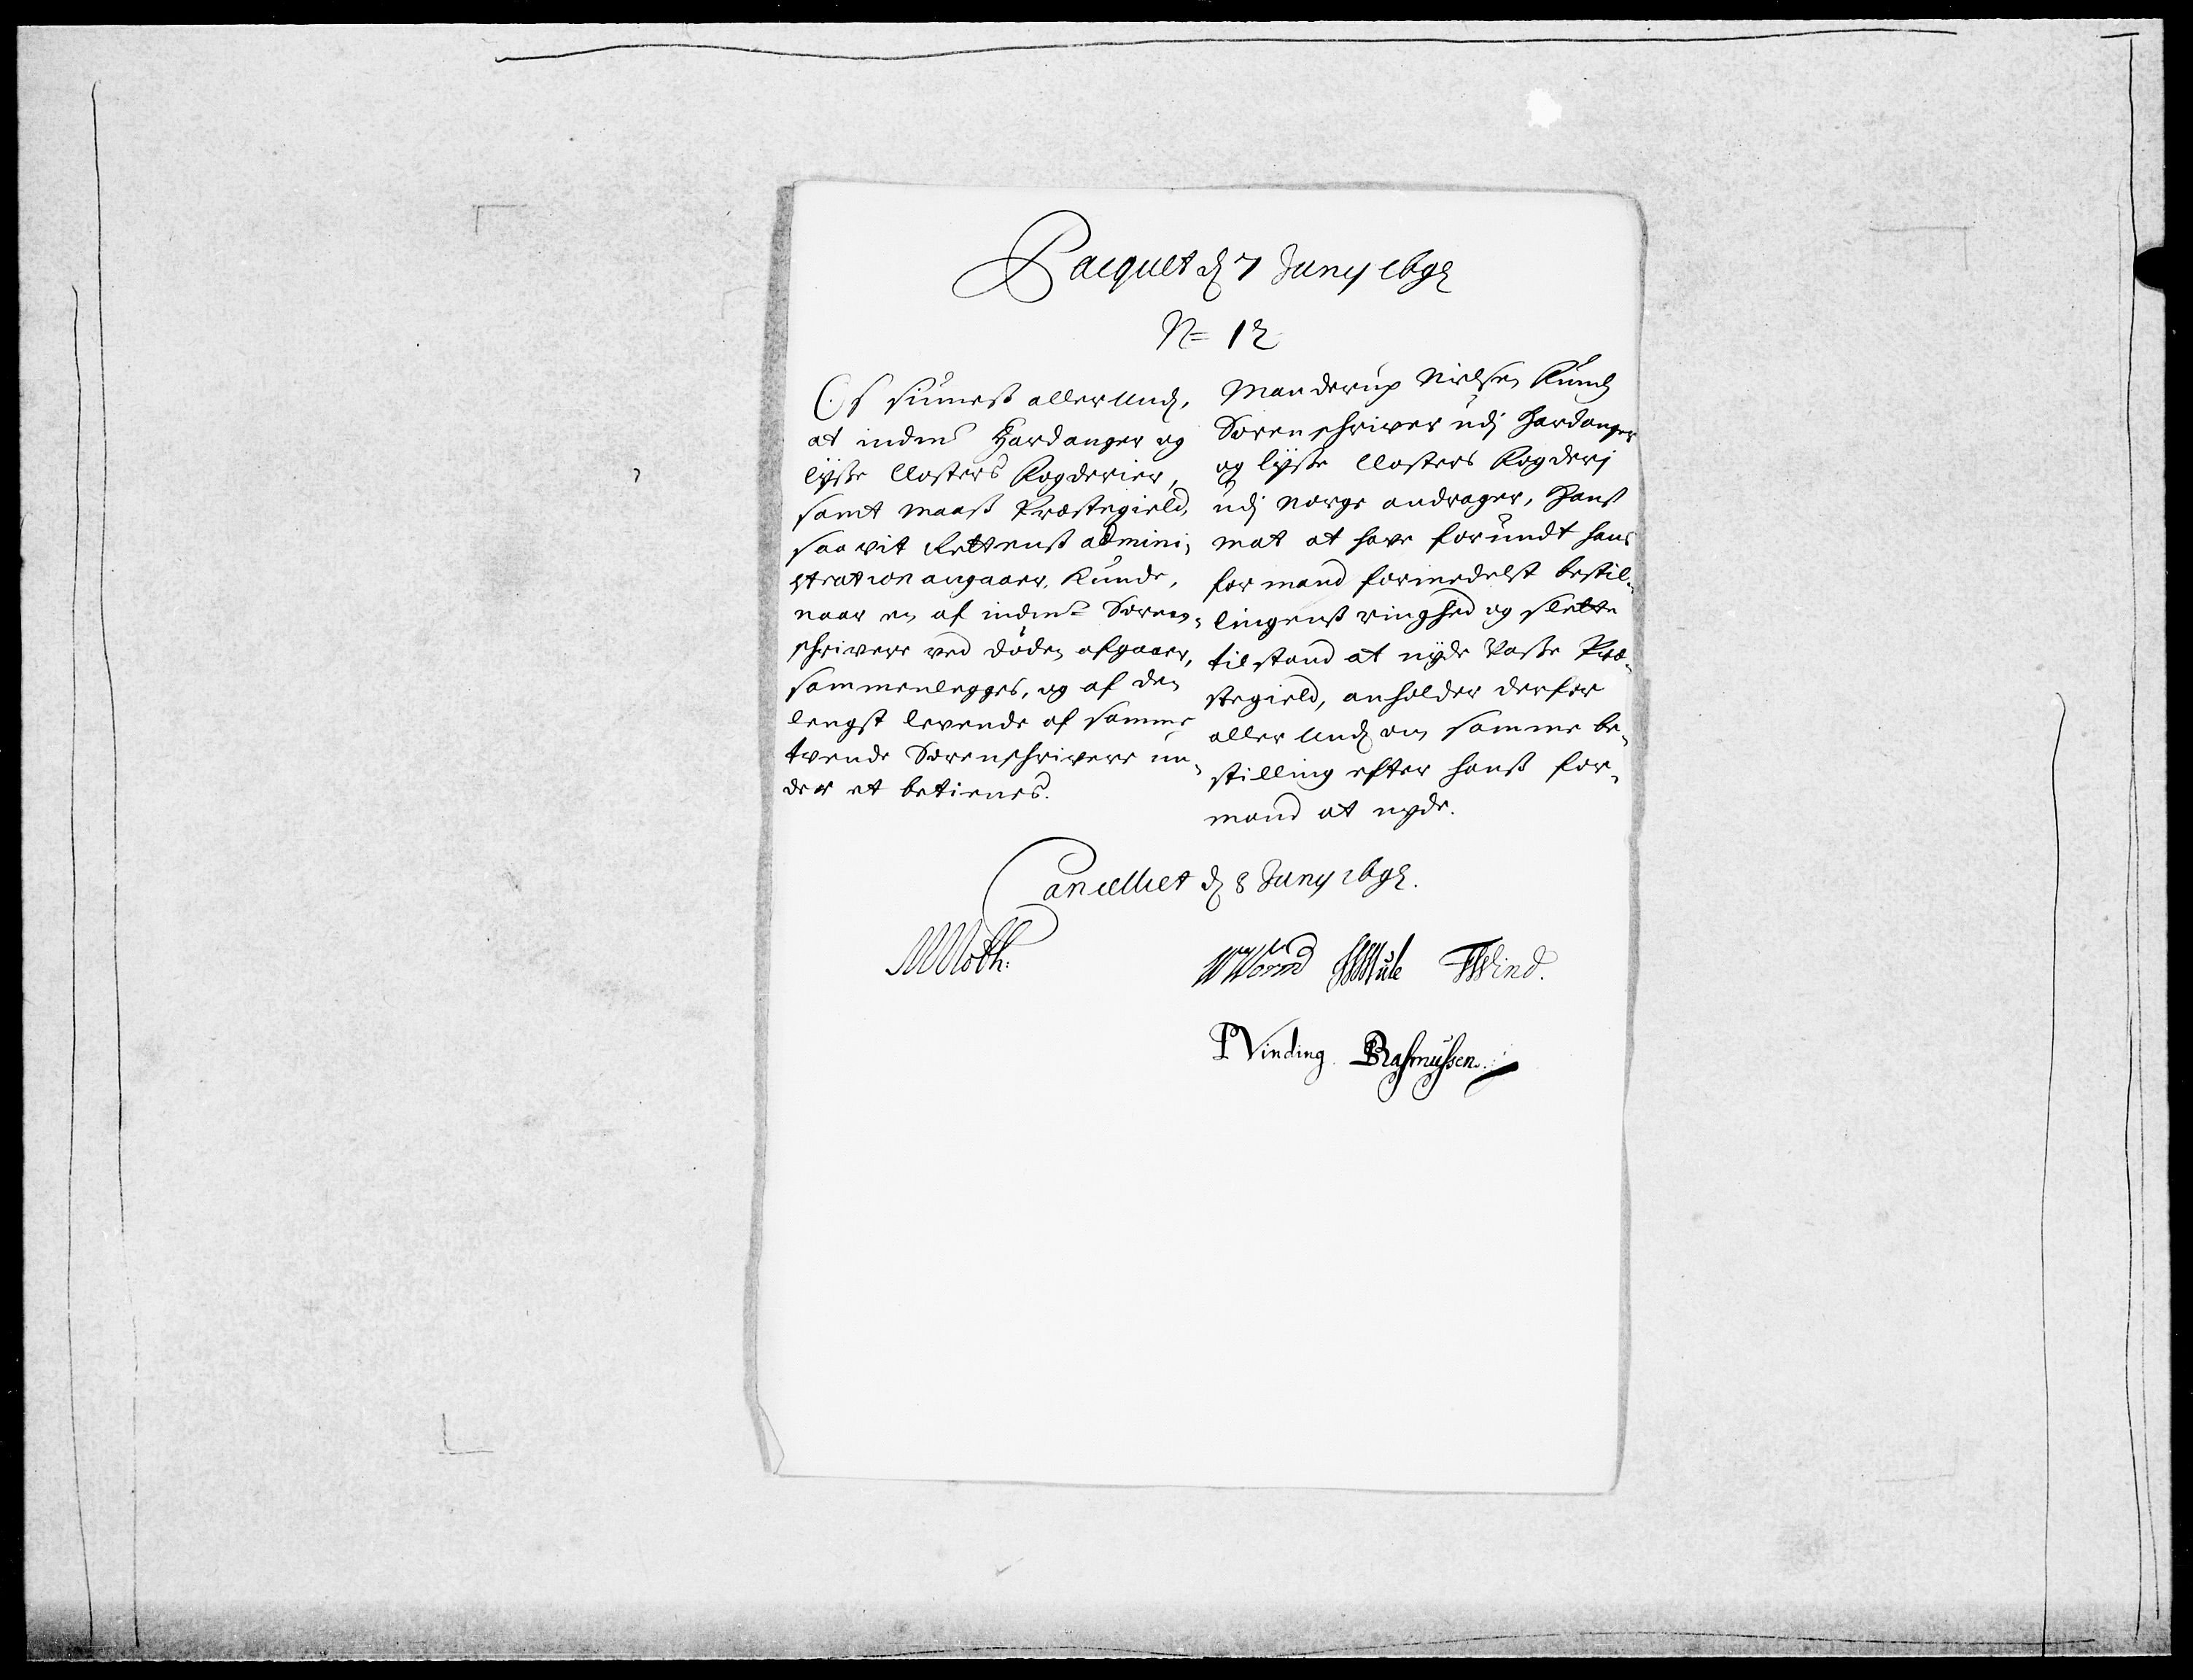 Pacquet d 7 Juny 1692
N= 12
Os siunes allerund,
at indens Hardanger og
lysse Closters Fogderier,
samt Maaß Præstegield,
saa vit Rettens admini,
stration angaaer, kunde,
naar en af indens Soren,
schrivere ved døden afgaaer,
sammenlegges, og af den
lengst levende af samme
tvende Sorenschrivere un,
der et betienes.
Manderup Nielsen
Sorenschriver udj Hardanger
og lysse Closters Fogderj
udj Norge andrager, Hans
Mat at have forundt hans
formand formedelst bestil,
lingens ringhed og slette
tilstand at nyde Præ,
stegield, anholder derfor
allerund om samme be,
stilling efter hans for,
mand at nyde.
Cancelliet d 8 Juny 1692.
MMoth:
WWorm Mule Wind.
PVinding. Rasmussen.